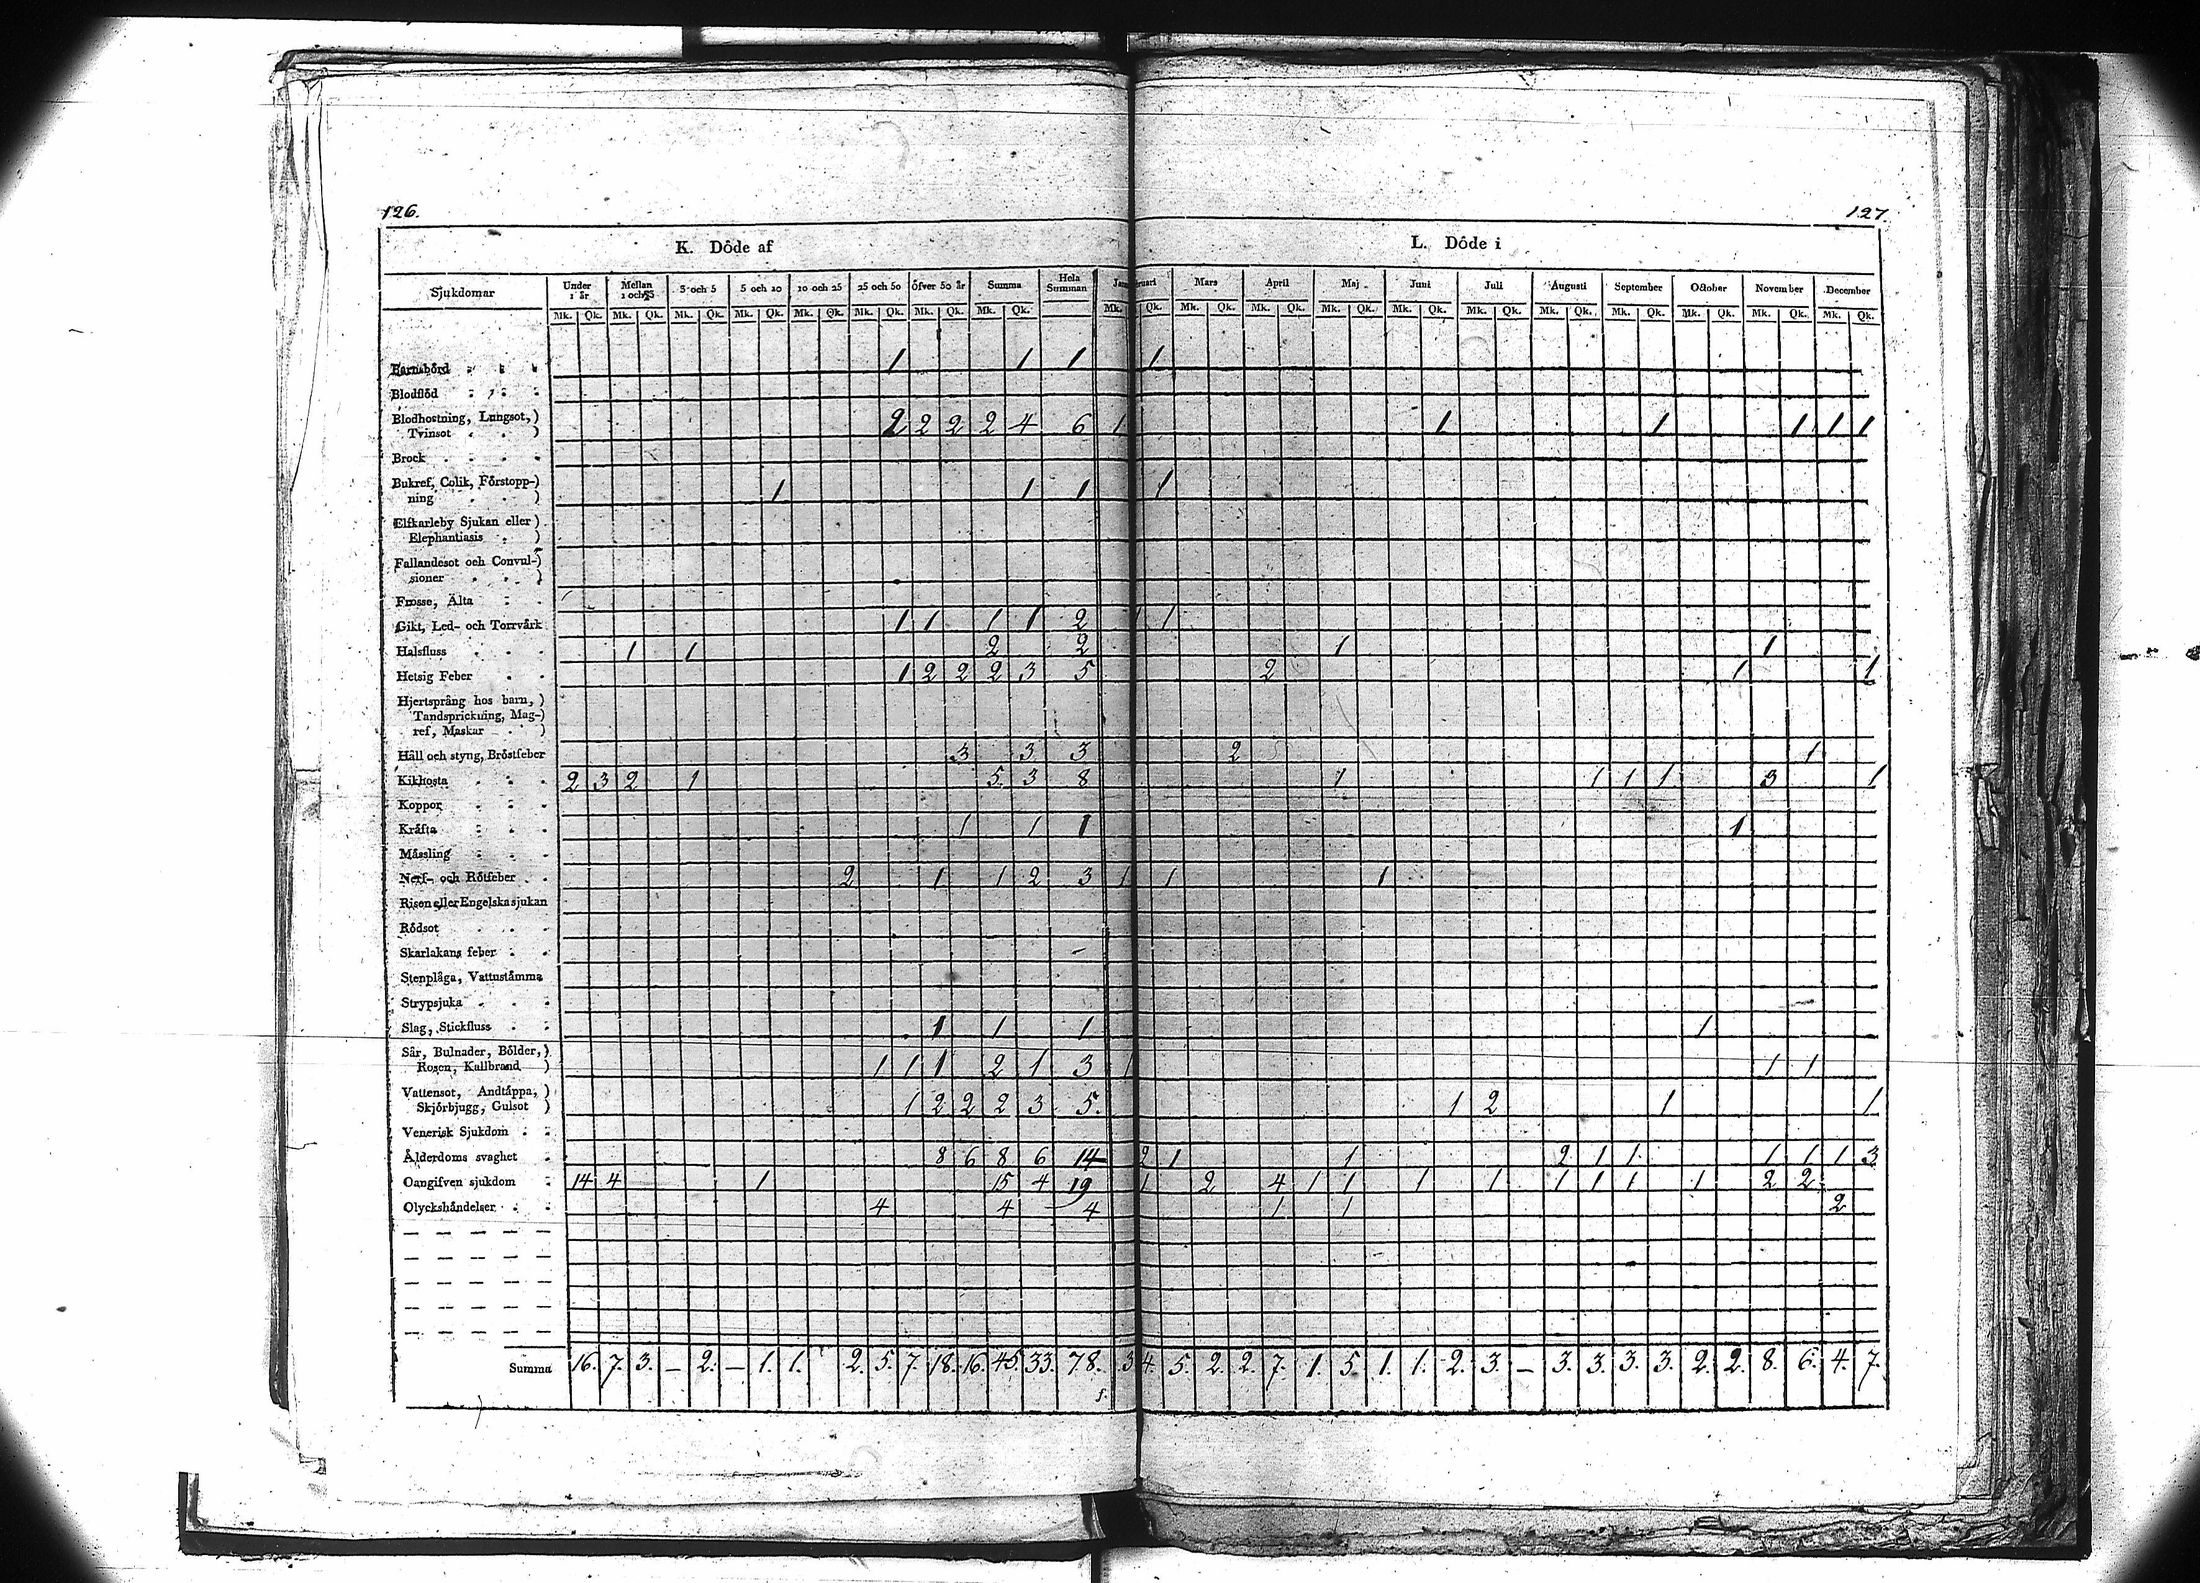 126.
127.
K. Dôde af
L. Dôde i
Sjukdomar
Under 1 år
Mellan 1 och 3
3 och 5
5 och 10
10 och 25
25 och 50
öfver 50 år
Summa
Hela Summan
Mars
April
Maj
Juni
Juli
Augusti
September
October
November
December
Mk. Qk. Mk. Qk. Mk. Qk. Mk. Qk. Mk. Qk. Mk. Qk. Mk. Qk. Mk. Qk. Mk. Qk. Mk. Qk. Mk. Qk. Mk. Qk. Mk. Qk. Mk. Qk. Mk. Qk. Mk. Qk. Mk. Qk. Mk. Qk. Mk. Qk.
Barnsbörd 1 1 1 1
Blodflöd
Blodhostning, Lungsot,)
Tvinsot ) 2 2 2 2 4 6 1 1 1 1 1 1
Brock
Bukref, Colik, Förstopp-)
ning ) 1 1 1 1
Elfkarleby Sjukan eller)
Elephantiasis )
Fallandesot och Convul-)
sioner )
Frosse, Älta
Gikt, Led- och Torrvärk 1 1 1 1 2 1 1
Halsfluss 1 1 2 2 1 1
Hetsig Feber 1 2 2 2 3 5 2 1 1
Hjertsprång hos barn,)
Tandsprickning, Mag-)
ref, Maskar )
Håll och styng, Bröstfeber 3 3 3 2 1
Kikhosta 2 3 2 1 5 3 8 1 1 1 1 3 1
Koppor
Kräfta 1 1 1 1
Mässling
Nerf- och Rötfeber 2 1 1 2 3 1 1 1
Risen eller Engelska sjukan
Rödsot
Skarlakans feber
Stenplåga, Vattustämma
Strypsjuka
Slag, Stickfluss 1 1 1 1
Sår, Bulnader, Bölder,)
Rosen, Kallbrand ) 1 1 1 2 1 3 1 1 1
Vattensot, Andtäppa,)
Skjörbjugg, Gulsot ) 1 2 2 2 3 5. 1 2 1 1
Venerisk Sjukdom
Ålderdoms svaghet 8 6 8 6 14 2 1 1 2 1 1 1 1 1 3
Oangifven sjukdom 14 4 1 15 4 19 1 2 4 1 1 1 1 1 1 1 1 2 2
Olyckshändelser 4 4 4 1 1 2
Summa 16. 7. 3. – 2. – 1. 1. 2. 5. 7. 18. 16. 45. 33. 78. 3 4. 5. 2. 2. 7. 1. 5. 1. 1. 2. 3. – 3. 3. 3. 3. 2. 2. 8. 6. 4. 7.